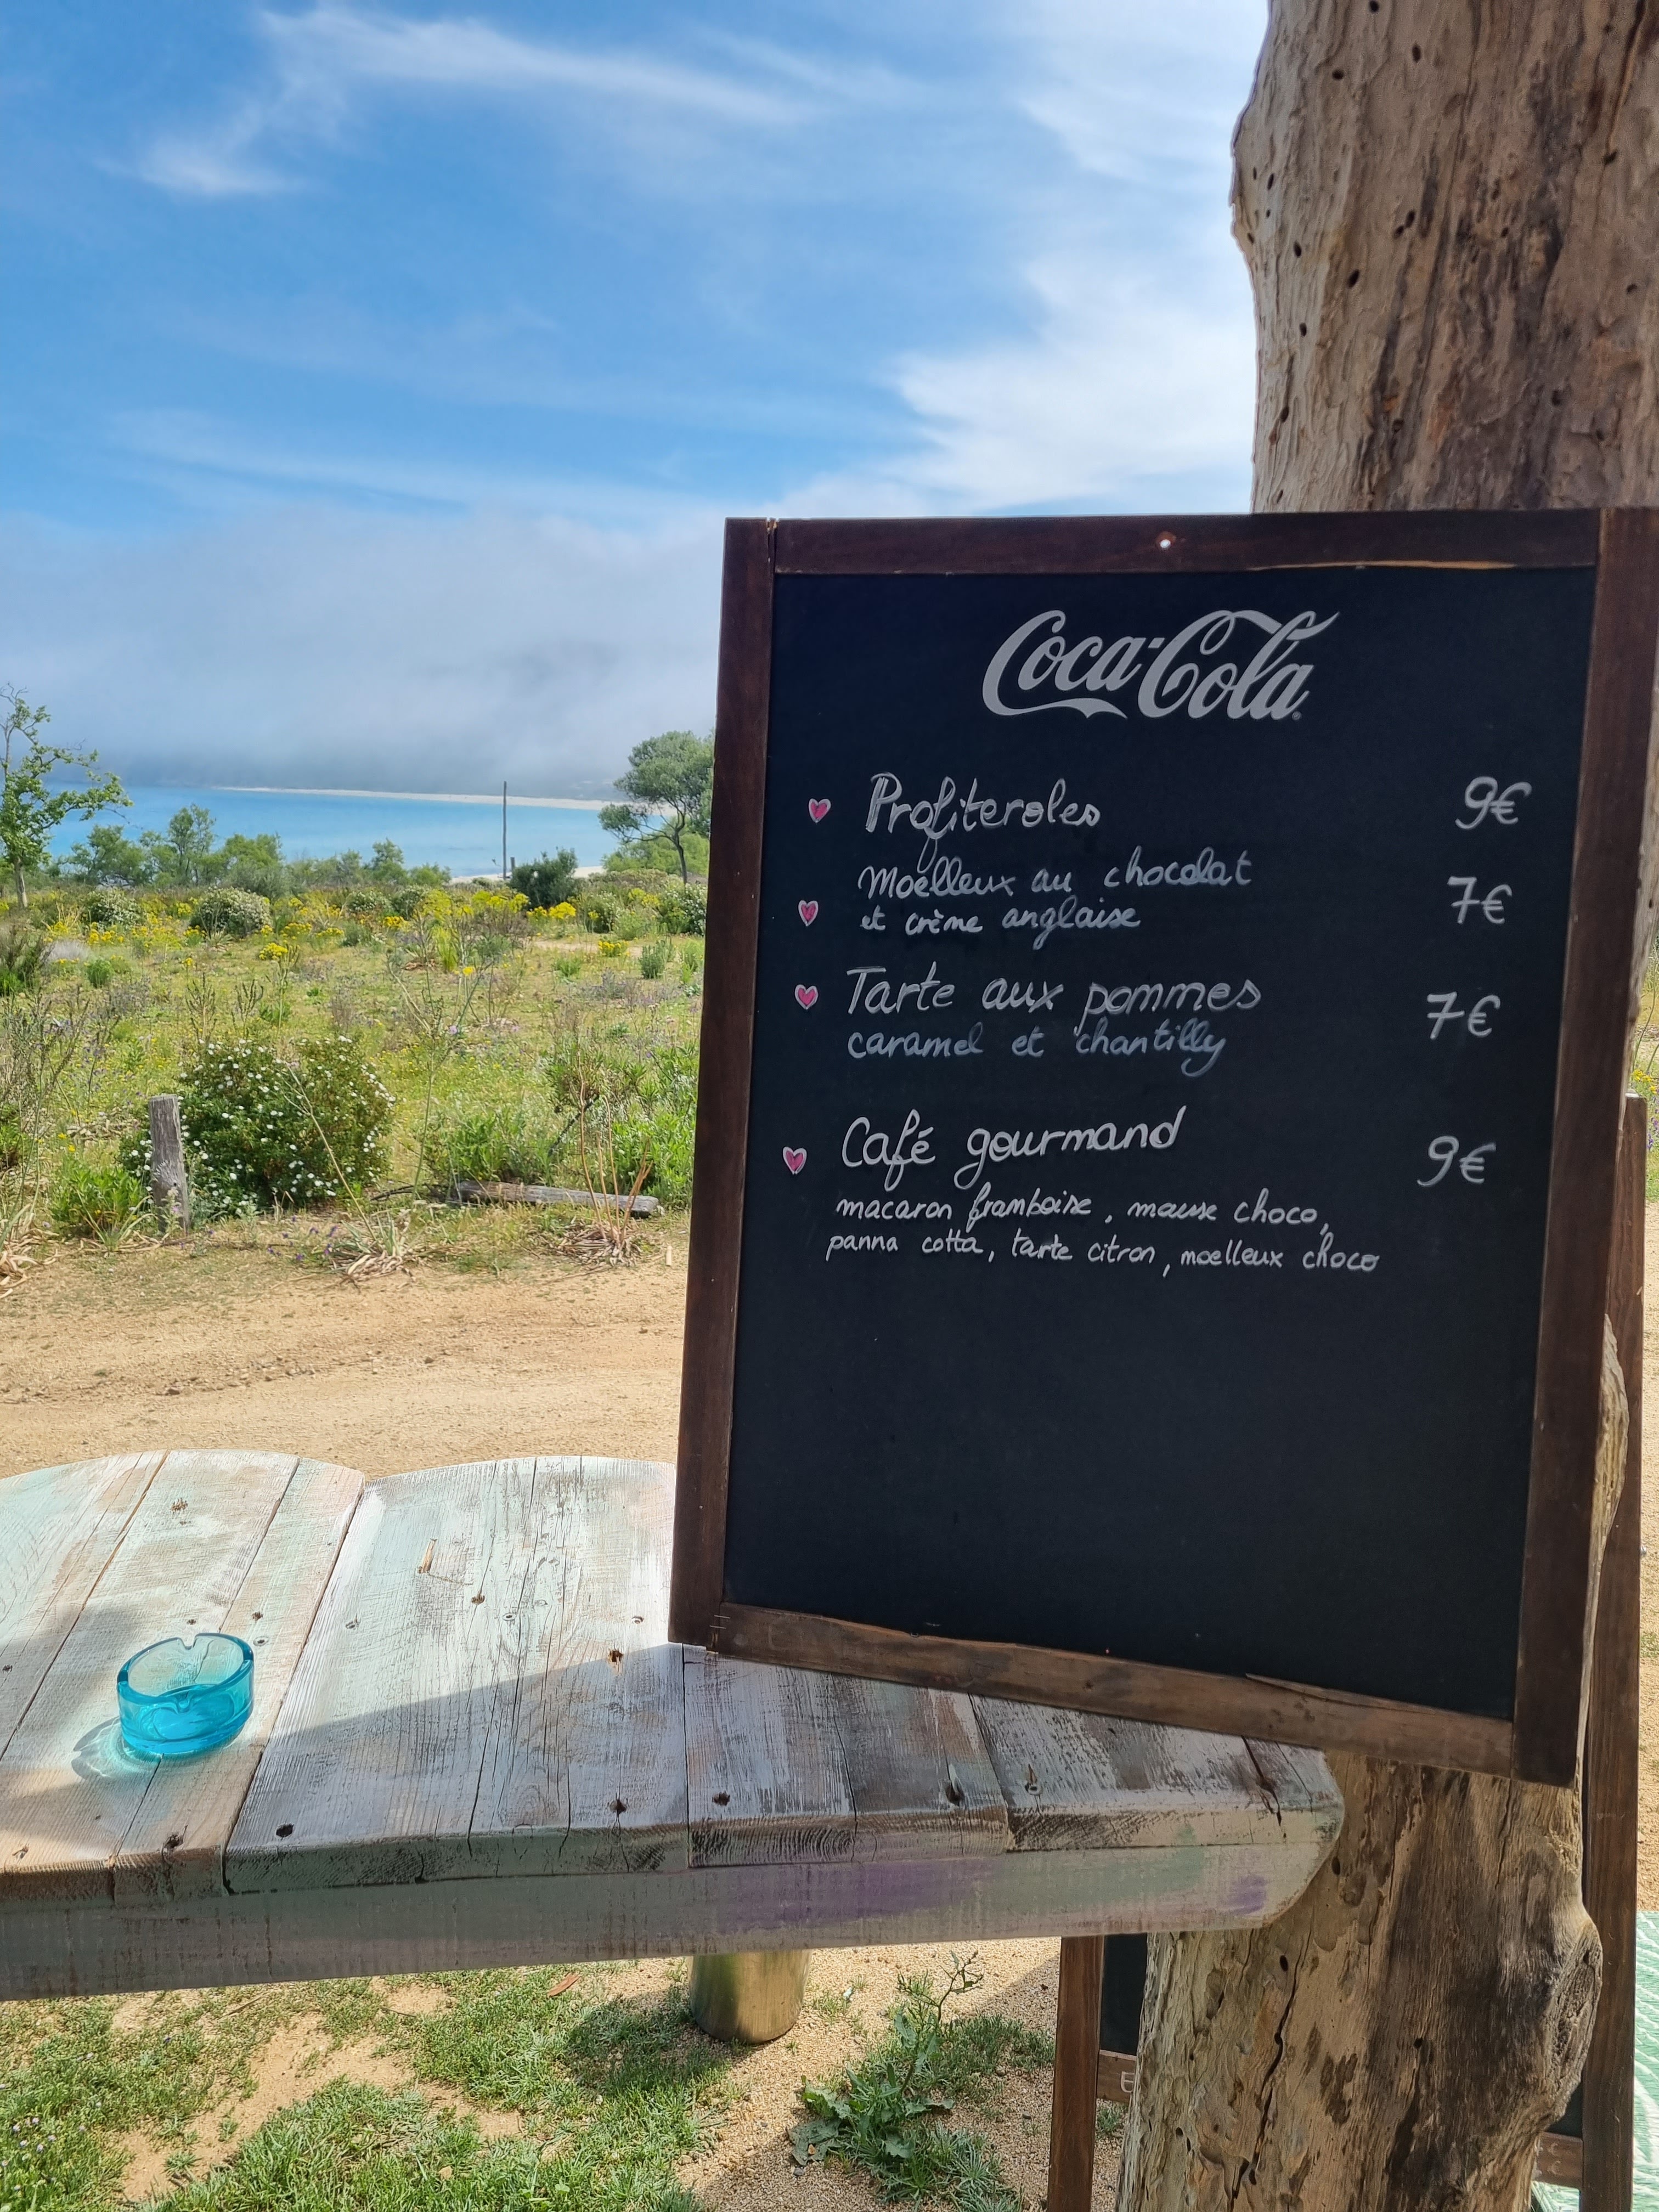 Coca-Cola
Profiteroles 9€
Moelleux au chocolat
et crème anglaise 7€
Tarte aux pommes 7€
caramel et chantilly
Café gourmand 9€
macaron framboise, mousse choco,
panna cotta, tarte citron, moelleux choco